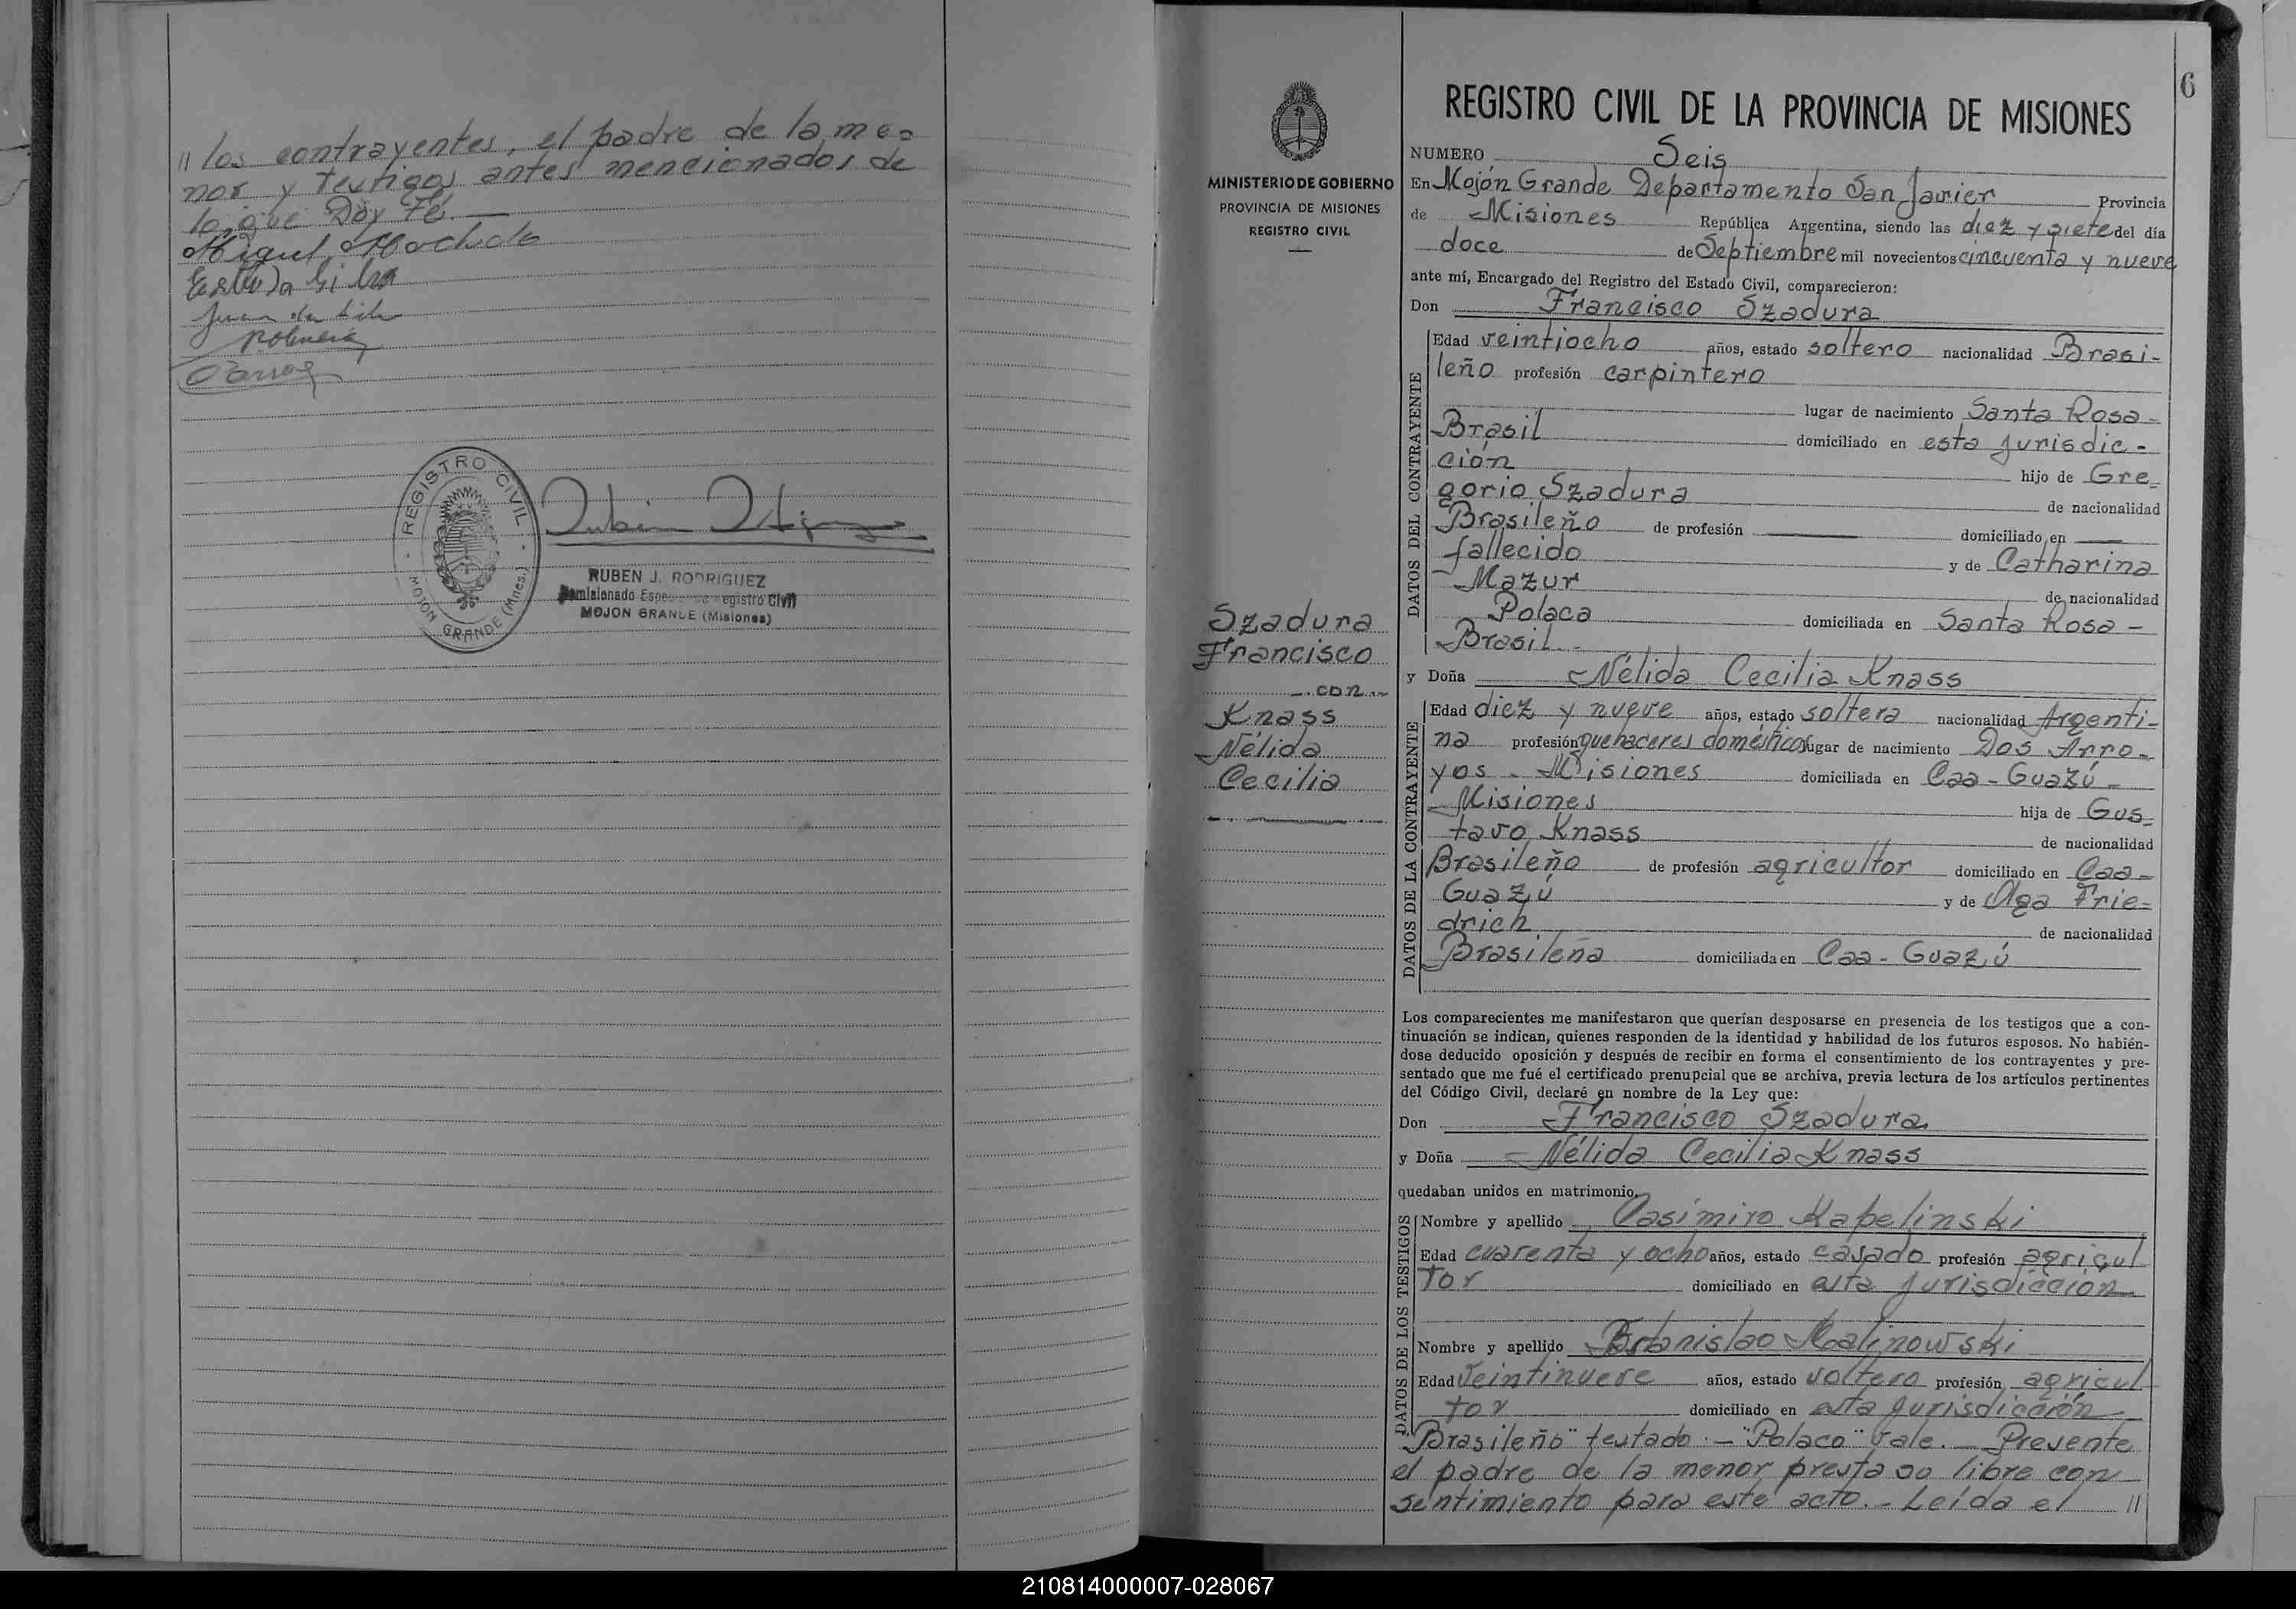 // los contrayentes, el padre de la me=
nor y testigos antes mencionados de
lo que Doy Fé.
Miguel Machado
Juan da Silva
REGISTRO CIVIL
MOJON GRANDE (Mnes.)
RUBEN J. RODRIGUEZ
Comisionado Especial Registro Civil
MOJON GRANDE (Misiones)
6
MINISTERIO DE GOBIERNO
PROVINCIA DE MISIONES
REGISTRO CIVIL
Szadura
Francisco
con
Knass
Nélida
Cecilia
REGISTRO CIVIL DE LA PROVINCIA DE MISIONES
NUMERO Seis
En Mojón Grande Departamento San Javier Provincia
de Misiones República Argentina, siendo las diez y siete del día
doce de Septiembre mil novecientos cincuenta y nueve
ante mí, Encargado del Registro del Estado Civil, comparecieron:
Don Francisco Szadura
DATOS DEL CONTRAYENTE
Edad veintiocho años, estado soltero nacionalidad Brasi-
leño profesión carpintero
lugar de nacimiento Santa Rosa-
Brasil domiciliado en esta jurisdic-
ción hijo de Gre=
gorio Szadura de nacionalidad
Brasileño de profesión —— domiciliado en ——
fallecido y de Catharina
Mazur de nacionalidad
Polaca domiciliada en Santa Rosa-
Brasil.
y Doña Nélida Cecilia Knass
DATOS DE LA CONTRAYENTE
Edad diez y nueve años, estado soltera nacionalidad Argenti-
na profesión quehaceres domésticos lugar de nacimiento Dos Arro-
yos - Misiones domiciliada en Caa-Guazú-
Misiones hija de Gus=
tavo Knass de nacionalidad
Brasileño de profesión agricultor domiciliado en Caa-
Guazú y de Olga Frie=
drich de nacionalidad
Brasileña domiciliada en Caa-Guazú
Los comparecientes me manifestaron que querían desposarse en presencia de los testigos que a con-
tinuación se indican, quienes responden de la identidad y habilidad de los futuros esposos. No habién-
dose deducido oposición y después de recibir en forma el consentimiento de los contrayentes y pre-
sentado que me fué el certificado prenupcial que se archiva, previa lectura de los artículos pertinentes
del Código Civil, declaré en nombre de la Ley que:
Don Francisco Szadura
y Doña Nélida Cecilia Knass
quedaban unidos en matrimonio.
DATOS DE LOS TESTIGOS
Nombre y apellido Casimiro Kapelinski
Edad cuarenta y ocho años, estado casado profesión agricul
tor domiciliado en esta jurisdicción
Nombre y apellido Estanislao Malinowski
Edad veintinueve años, estado soltero profesión agricul
tor domiciliado en esta jurisdicción
"Brasileño" testado.- "Polaco" vale.- Presente
el padre de la menor presta su libre con
sentimiento para este acto.- Leída el //
210814000007-028067